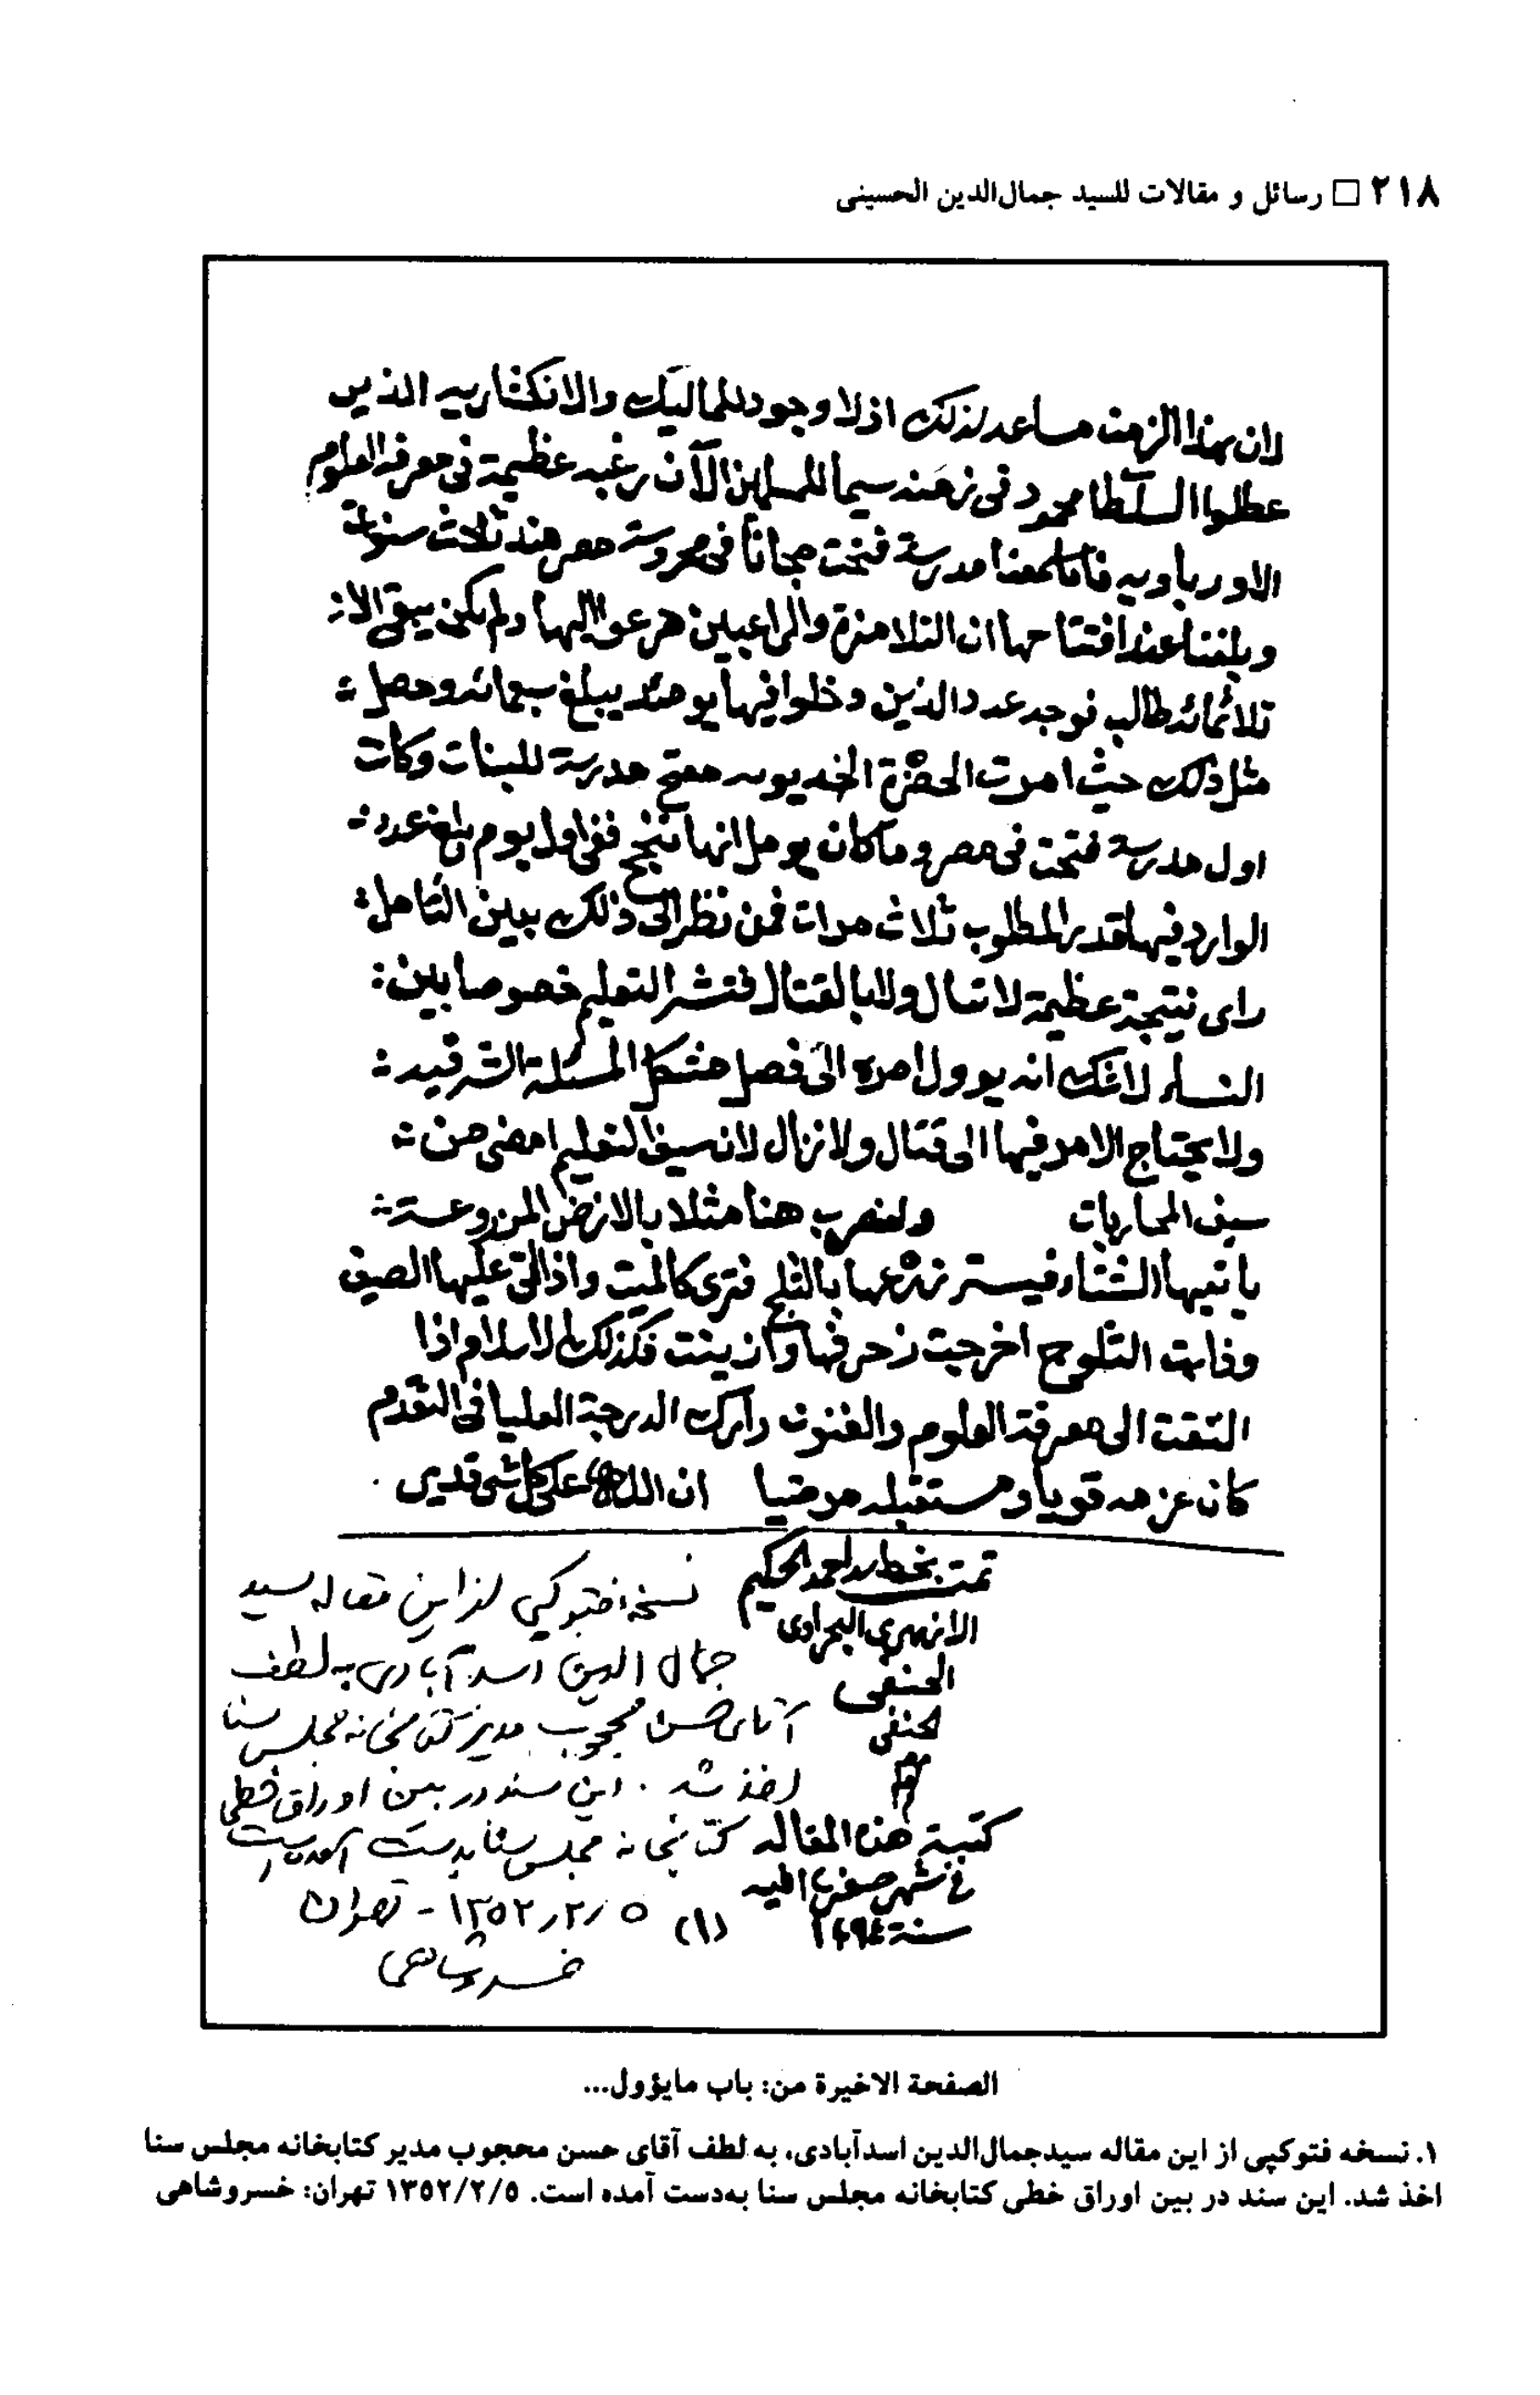 ٢١٨ □ رسائل و مقالات للسيد جمال‌الدين الحسينى
لان هذا الزمن مساعد لذلك اذ لا وجود للماليك والانكشاريه الذين
عطلوا السلطا محمود فى زمنه سيما للمسلمين الآن رغبه عظيمة فى معرفه العلوم
الاورباويه فاننا سمعنا مدرسة فتحت مجاناً فى محروسة مصر منذ ثلاث سنوات
وبلغنا عند افتتاحها ان التلامذة والراغبين هرعوا اليها ولم يكن يبقى الا
ثلاثمائه طالب فوجد عدد الذين دخلوا فيها يومئذ يبلغ سبعمائه وحصل
مثل ذلك حيث امرت الحضرة الخديويه مدرسة للبنات وكانت
اول مدرسة فتحت فى مصر وما كان يومل انها تنجح ففى اول يوم بلغ عدد
الوارد فيها قدر المطلوب ثلاث مرات فمن نظر الى ذلك بعين التامل
راى نتيجة عظيمة لا تنال ولا بالقتال فنشر التعليم خصوصا بين
النساء لا شك انه يوول امره الى فصل مشكل المسئلة الشرقيه
ولا يحتاج الامر فيها الى قتال ولا نزال لان سيف التعليم امضى من
سيف المحاربات ولنضرب هنا مثلا بالارض المزروعة
ياتيها الشتاء فيستر زرعها بالثلج فترى كالميت واذا اتى عليها الصيف
وذابت الثلوج اخرجت زخرفها وازينت فكذلك الاسلام اذا
التفت الى معرفة العلوم والفنون وادرك الدرجة العليا فى التقدم
كان عزمه قويا ومستقبله مرضيا ان الله على كل شى قدير .
تمت بخط احمد الحكيم
الازهرى البحراوى
الحنفى
لحنفى
كتبة هذه المقاله
فى شهر صفر
سنة ١٢٩٤
نسخه فتوكپى از اين مقاله سيد
جمال الدين اسدآبادى به لطف
آقاى حسن محجوب مدير كتابخانه مجلس سنا
اخذ شد . اين سند در بين اوراق خطى
كتابخانه مجلس سنا بدست آمده است
(١) ١٣٥٢/٢/٥ - تهران
خسروشاهى
الصفحة الاخيرة من: باب مايؤول...
١. نسخه فتوكپى از اين مقاله سيدجمال‌الدين اسدآبادى، به لطف آقاى حسن محجوب مدير كتابخانه مجلس سنا
اخذ شد. اين سند در بين اوراق خطى كتابخانه مجلس سنا به‌دست آمده است. ١٣٥٢/٢/٥ تهران: خسروشاهى